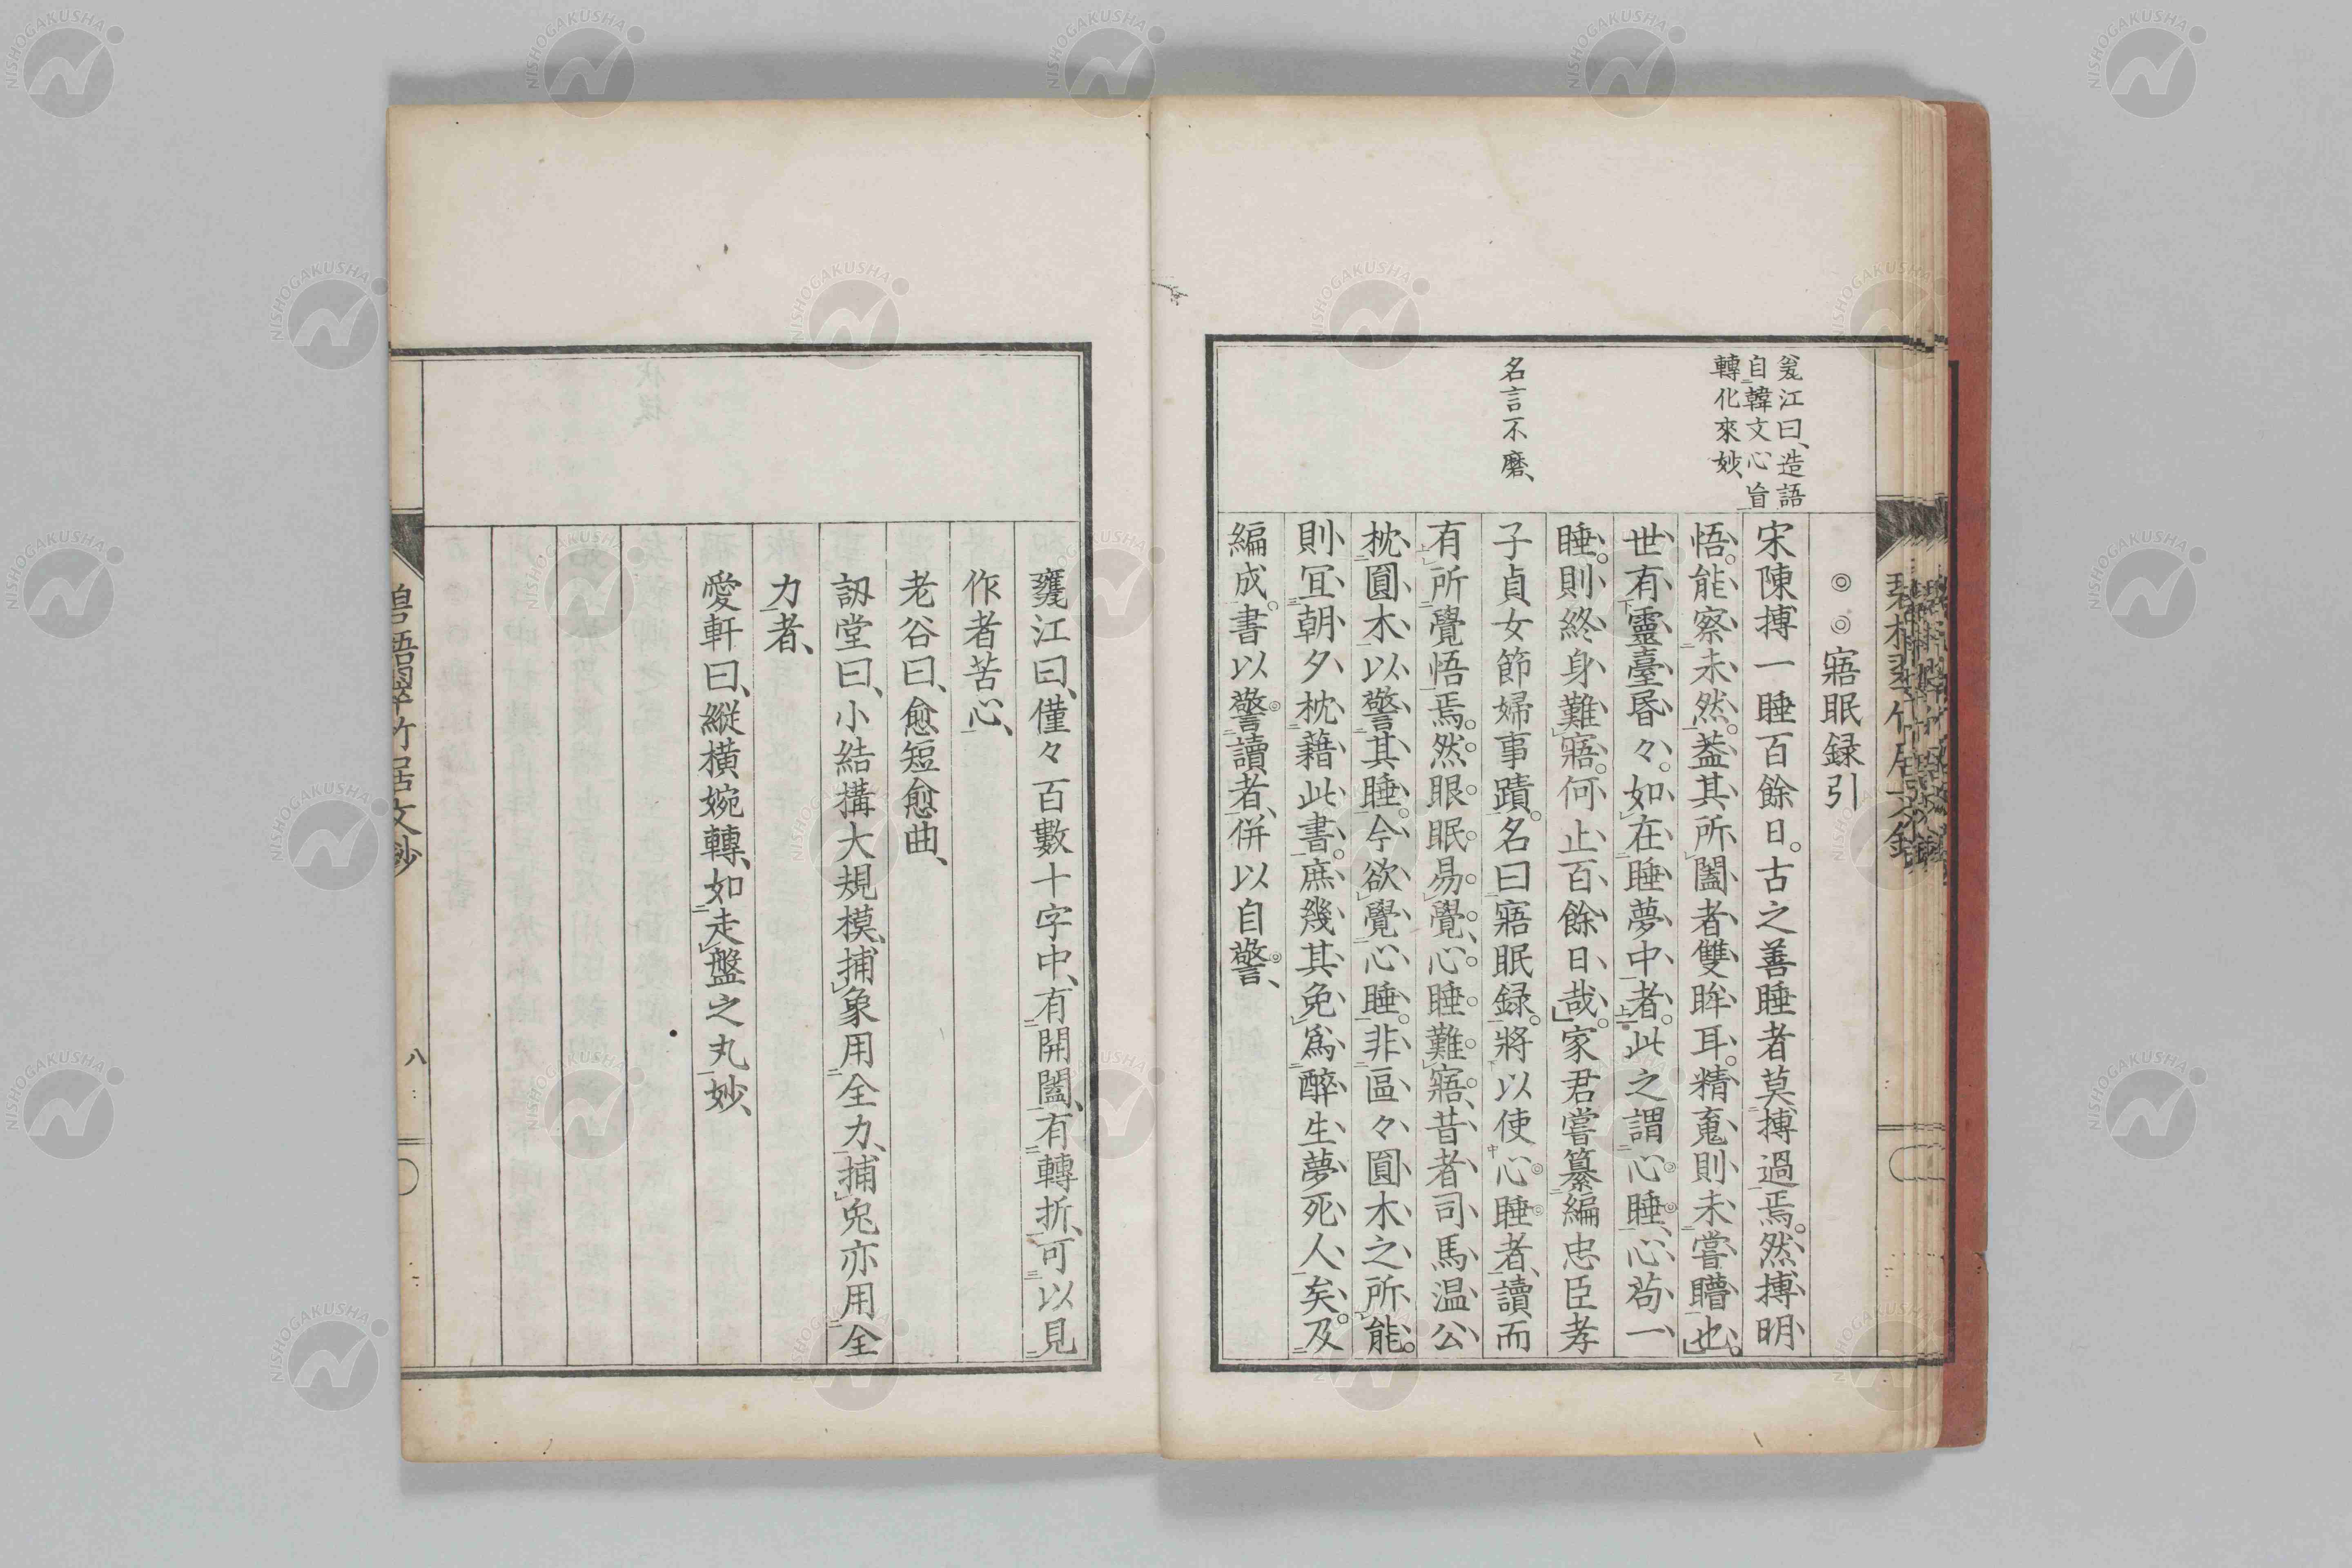 甕江曰、造語
自韓文心旨
轉化來妙、
名言不磨、
◎◎寤眠録引
宋陳摶一睡百餘日。古之善睡者莫摶過焉。然摶明
悟。能察未然。葢其所闔者雙眸耳。精䰟則未嘗瞢也。
世有靈臺昏々。如在睡夢中者。此之謂心睡、心苟一
睡。則終身難寤。何止百餘日哉。家君嘗纂編忠臣孝
子貞女節婦事蹟。名曰寤眠録。將以使心睡者、讀而
有所覺悟焉。然眼眠易覺、心睡難寤、昔者司馬温公
枕圓木以警其睡。今欲覺心睡。非區々圓木之所能。
則冝朝夕枕藉此書。庶幾其免爲醉生夢死人矣。及
編成。書以警讀者、併以自警、
甕江曰、僅々百數十字中、有開闔、有轉折、可以見
作者苦心、
老谷曰、愈短愈曲、
訒堂曰、小結搆大規模、捕象用全力、捕兔亦用全
力者、
愛軒曰、縱橫婉轉、如走盤之丸、妙、
碧梧翠竹居文鈔
八